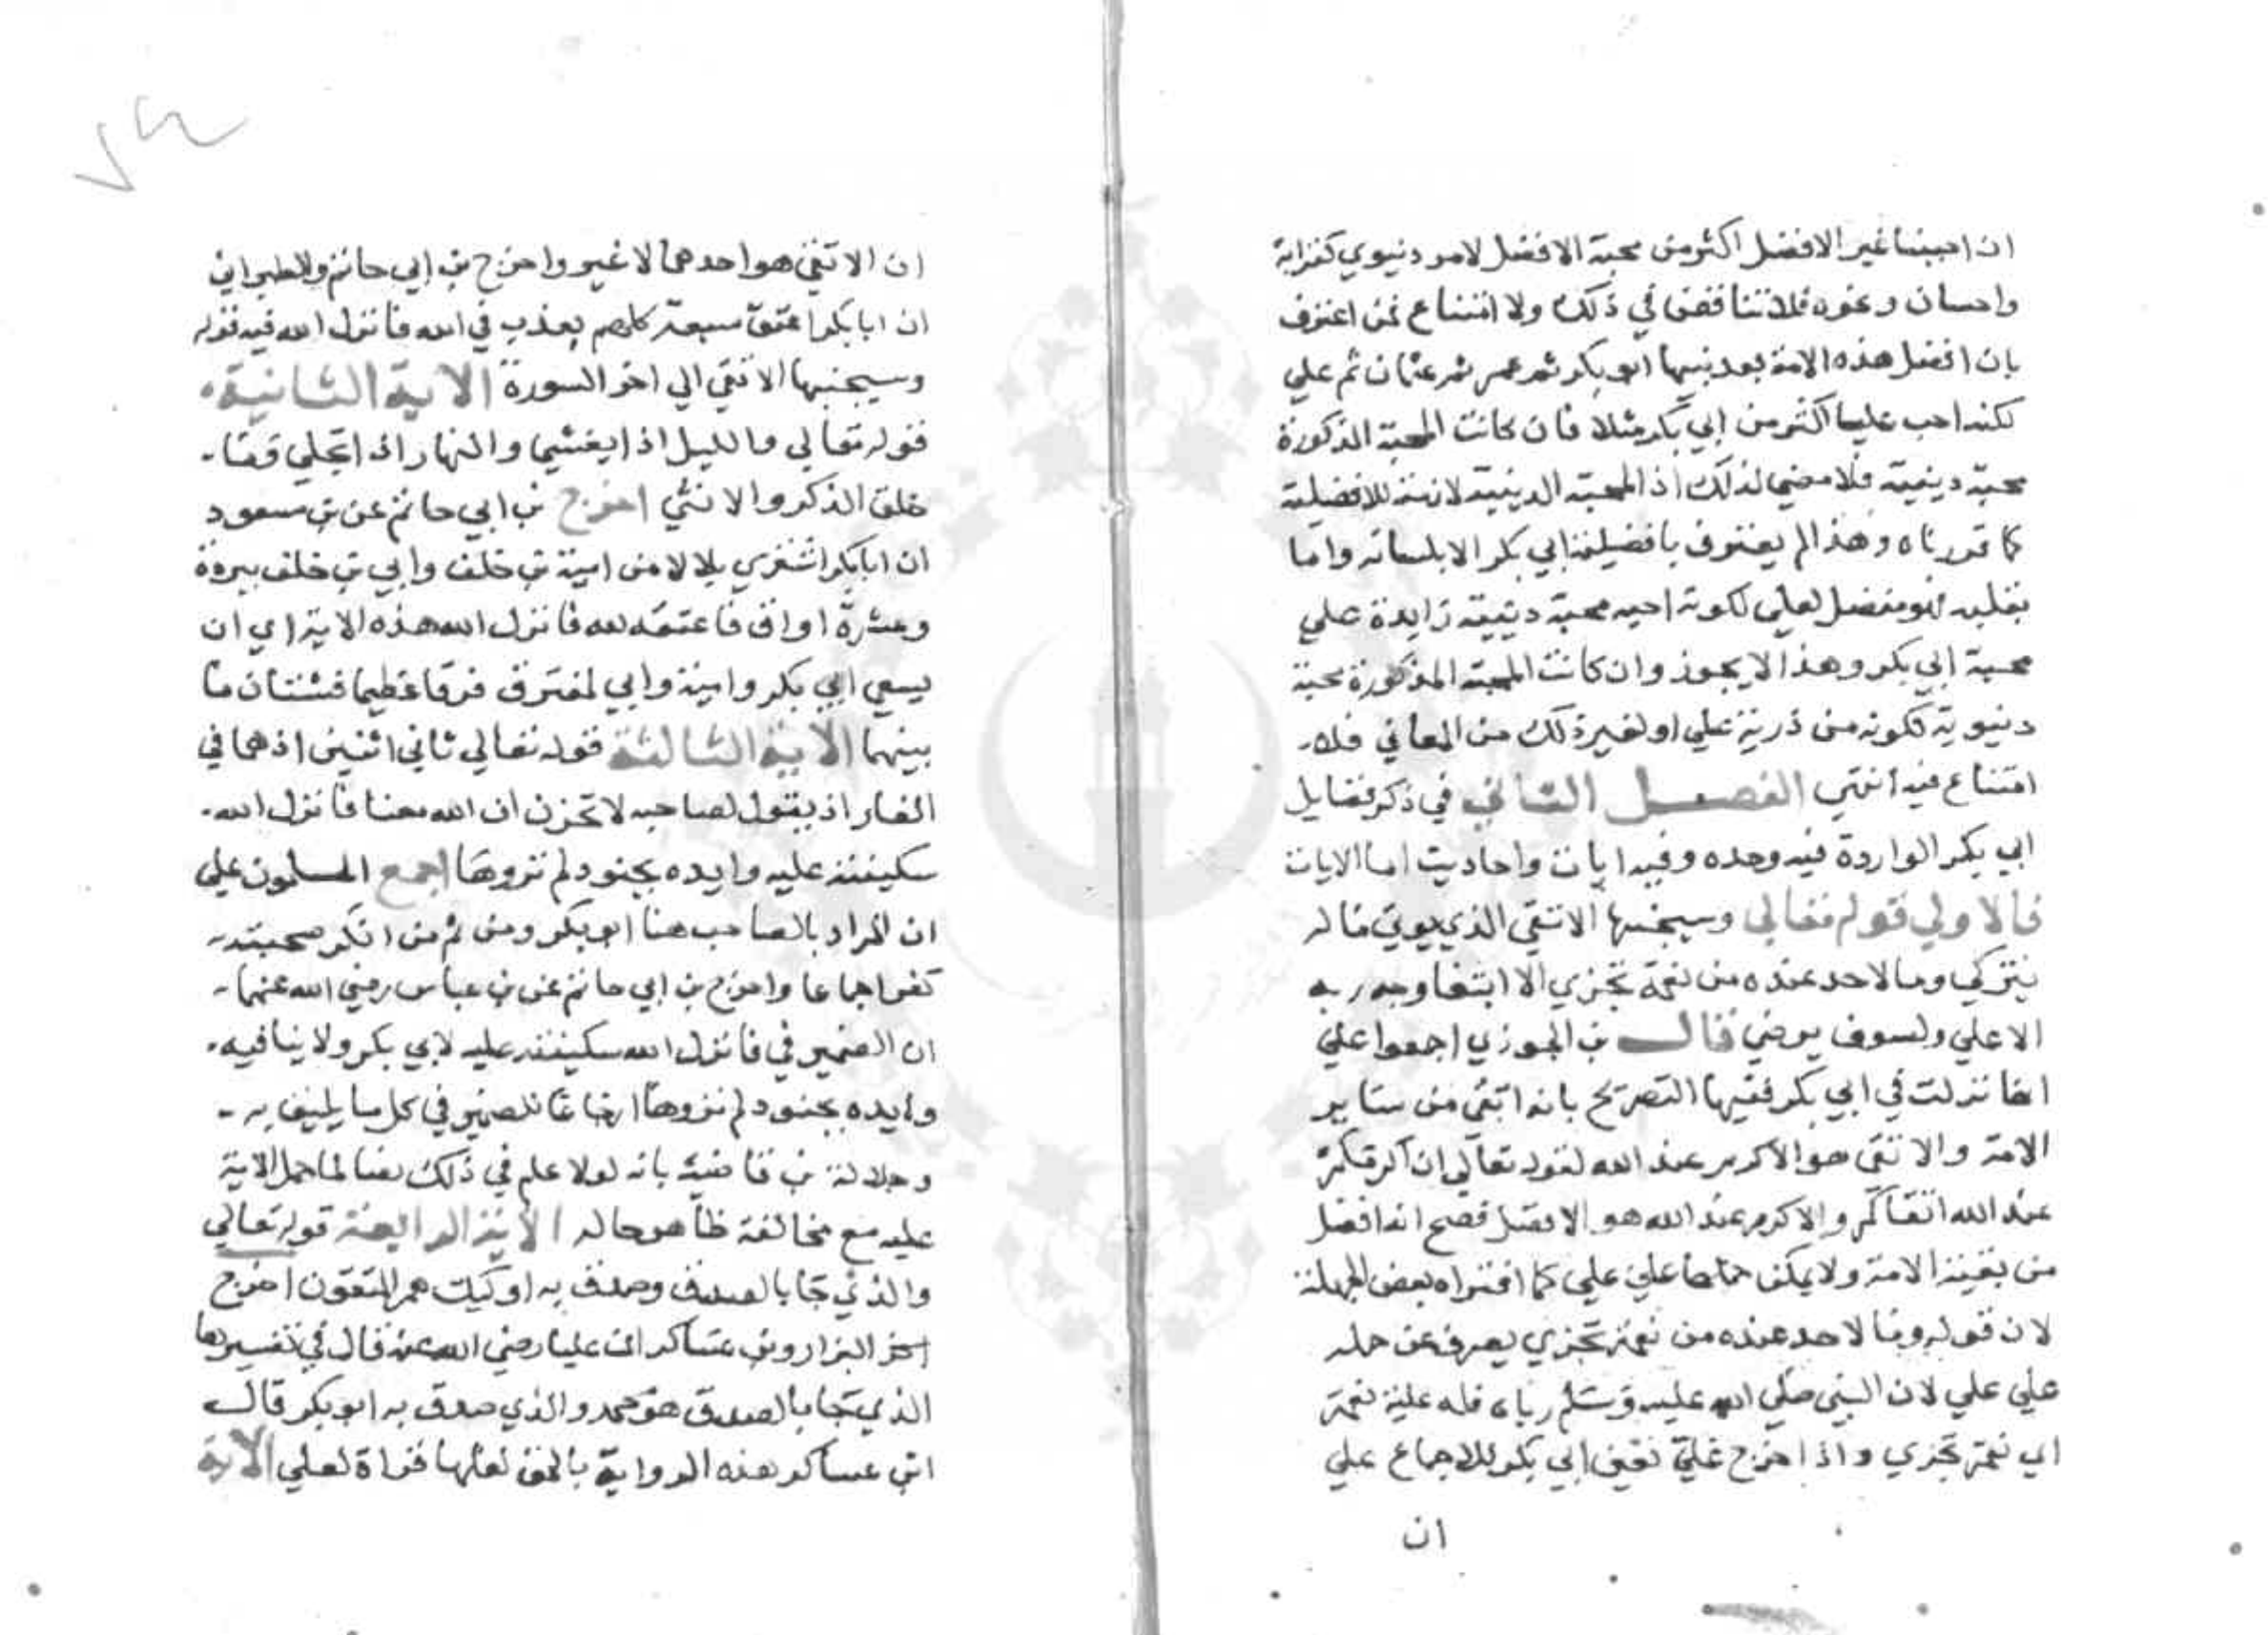 ان احببنا غير الافضل اكثر من محبة الافضل لامر دنيوي كقرابة
واحسان ونحوه فلا تناقض في ذلك ولا امتناع فمن اعترف
بان افضل هذه الامة بعد نبيها ابو بكر ثم عمر ثم عثمان ثم علي
لكنه احب عليا اكثر من ابي بكر مثلا فان كانت المحبة المذكورة
محبة دينية فلا معني لذلك اذ المحبة الدينية لازمة للافضلية
كما قررناه وهذا لم يعترف بافضلية ابي بكر الا بلسانه واما
بقلبه فهو مفضل لعلي لكونه احبه محبة دينية زايدة علي
محبة ابي بكر وهذا لا يجوز وان كانت المحبة المذكورة محبة
دنيوية لكونه من ذرية علي او لغير ذلك من المعاني فلا
امتناع فيه انتهي الفصل الثاني في ذكر فضايل
ابي بكر الواردة فيه وحده وفيه ايات واحاديث اما الايات
فالاولي قوله تعالي وسيجنبها الاتقي الذي يوتي ماله
يتزكي وما لاحد عنده من نعمة تجزي الا ابتغا وجه ربه
الاعلي ولسوف يرضي قال بن الجوزي اجمعوا علي
انها نزلت في ابي بكر ففيها التصريح بانه اتقي من ساير
الامة والاتقي هو الاكرم عند الله لقوله تعالي ان اكرمكم
عند الله اتقاكم والاكرم عند الله هو الافضل فصح انه افضل
من بقية الامة ولا يمكن حملها علي علي كما افتراه بعض الجهلة
لان قوله وما لاحد عنده من نعمة تجزي يصرفه عن حمله
علي علي لان النبي صلي الله عليه وسلم رباه فله عليه نعمة
اي نعمة تجزي واذا خرج علي تعين ابي بكر للاجماع علي
ان
ان الاتقي هو احدهما لا غير واخرج بن ابي حاتم والطبراني
ان ابا بكر اعتق سبعة كلهم يعذب في الله فانزل الله فيه قوله
وسيجنبها الاتقي الي اخر السورة الاية الثانية
قوله تعالي والليل اذا يغشي والنهار اذا تجلي وما
خلق الذكر والانثي اخرج بن ابي حاتم عن بن مسعود
ان ابا بكر اشتري بلالا من امية بن خلف وابي بن خلف ببردة
وعشرة اواق فاعتقه لله فانزل الله هذه الاية اي ان
يسعي ابي بكر وامية وابي لمفترق فرقا عظيما فشتان ما
بينهما الاية الثالثة قوله تعالي ثاني اثنين اذ هما في
الغار اذ يقول لصاحبه لا تحزن ان الله معنا فانزل الله
سكينته عليه وايده بجنود لم تروها اجمع المسلمون علي
ان المراد بالصاحب هنا ابو بكر ومن ثم من انكر صحبته
كفر اجماعا واخرج بن ابي حاتم عن بن عباس رضي الله عنهما
ان الضمير في فانزل الله سكينته عليه لابي بكر ولا ينافيه
وايده بجنود لم تروها ارجاعا للضمير في كل ما يليق به
وجلالة بن عباس قاضية بانه لولا علم في ذلك نصا لما حمل الاية
عليه مع مخالفة ظاهره له الاية الرابعة قوله تعالي
والذي جا بالصدق وصدق به اوليك هم المتقون اخرج
البزار وبن عساكر ان عليا رضي الله عنه قال في تفسيرها
الذي جا بالصدق هو محمد والذي صدق به ابو بكر قال
ابن عساكر هذه الرواية بالحق لعلها قراة لعلي الاية